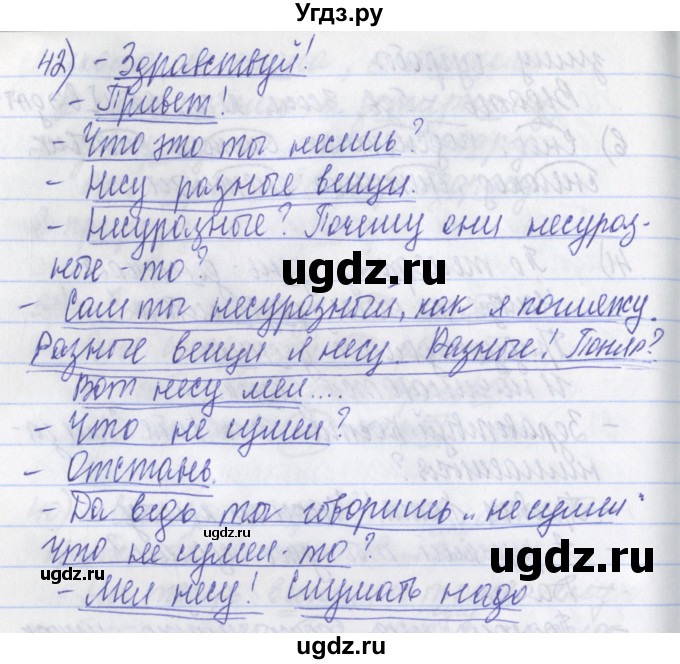 Угдз.ру
42) - Здравствуй!
- Привет!
- Что это ты несешь?
- Несу разные вещи.
- Несуразные? Почему они несураз-
ные-то?
- Сам ты несуразный, как я погляжу.
Разные вещи я несу. Разные! Понял?
Вот несу мел....
- Что не сумел?
- Отстань.
- Да ведь ты говоришь „не сумел“
Что не сумел-то?
- Мел несу! Слушать надо
ugdz.ru
ugdz.ru
ugdz.ru
ugdz.ru
ugdz.ru
ugdz.ru
ugdz.ru